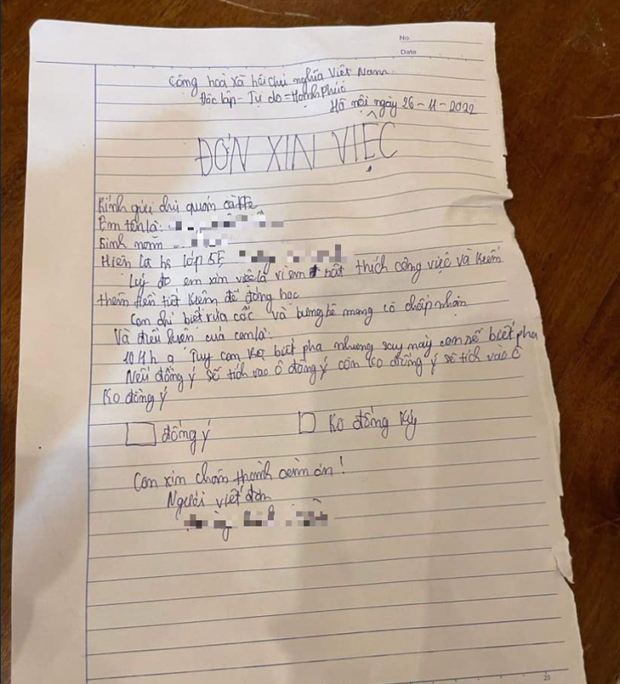 No
Date
Cộng hoà xã hội chủ nghĩa Việt Nam
Độc lập - Tự do = Hạnh phúc
Hà nội ngày 26-11-2022
ĐƠN XIN VIỆC
Kính gửi chủ quán cà fe
Em tên là:
Sinh năm
Hiện là hs lớp 5E
Lý do em xin việc là vì em rất thích công việc và kiếm
thêm tiền tiết kiệm để đóng học
Con chỉ biết rửa cốc và bưng bê mong cô chấp nhận
Và điều kiện của con là:
10k 1h ạ Tuy con ko biết pha nhưng sau này con sẽ biết pha
Nếu đồng ý sẽ tích vào ô đồng ý còn ko đồng ý sẽ tích vào ô
Ko đồng ý
đồng ý
Ko đồng ý
Con xin chân thành cảm ơn!
Người viết đơn